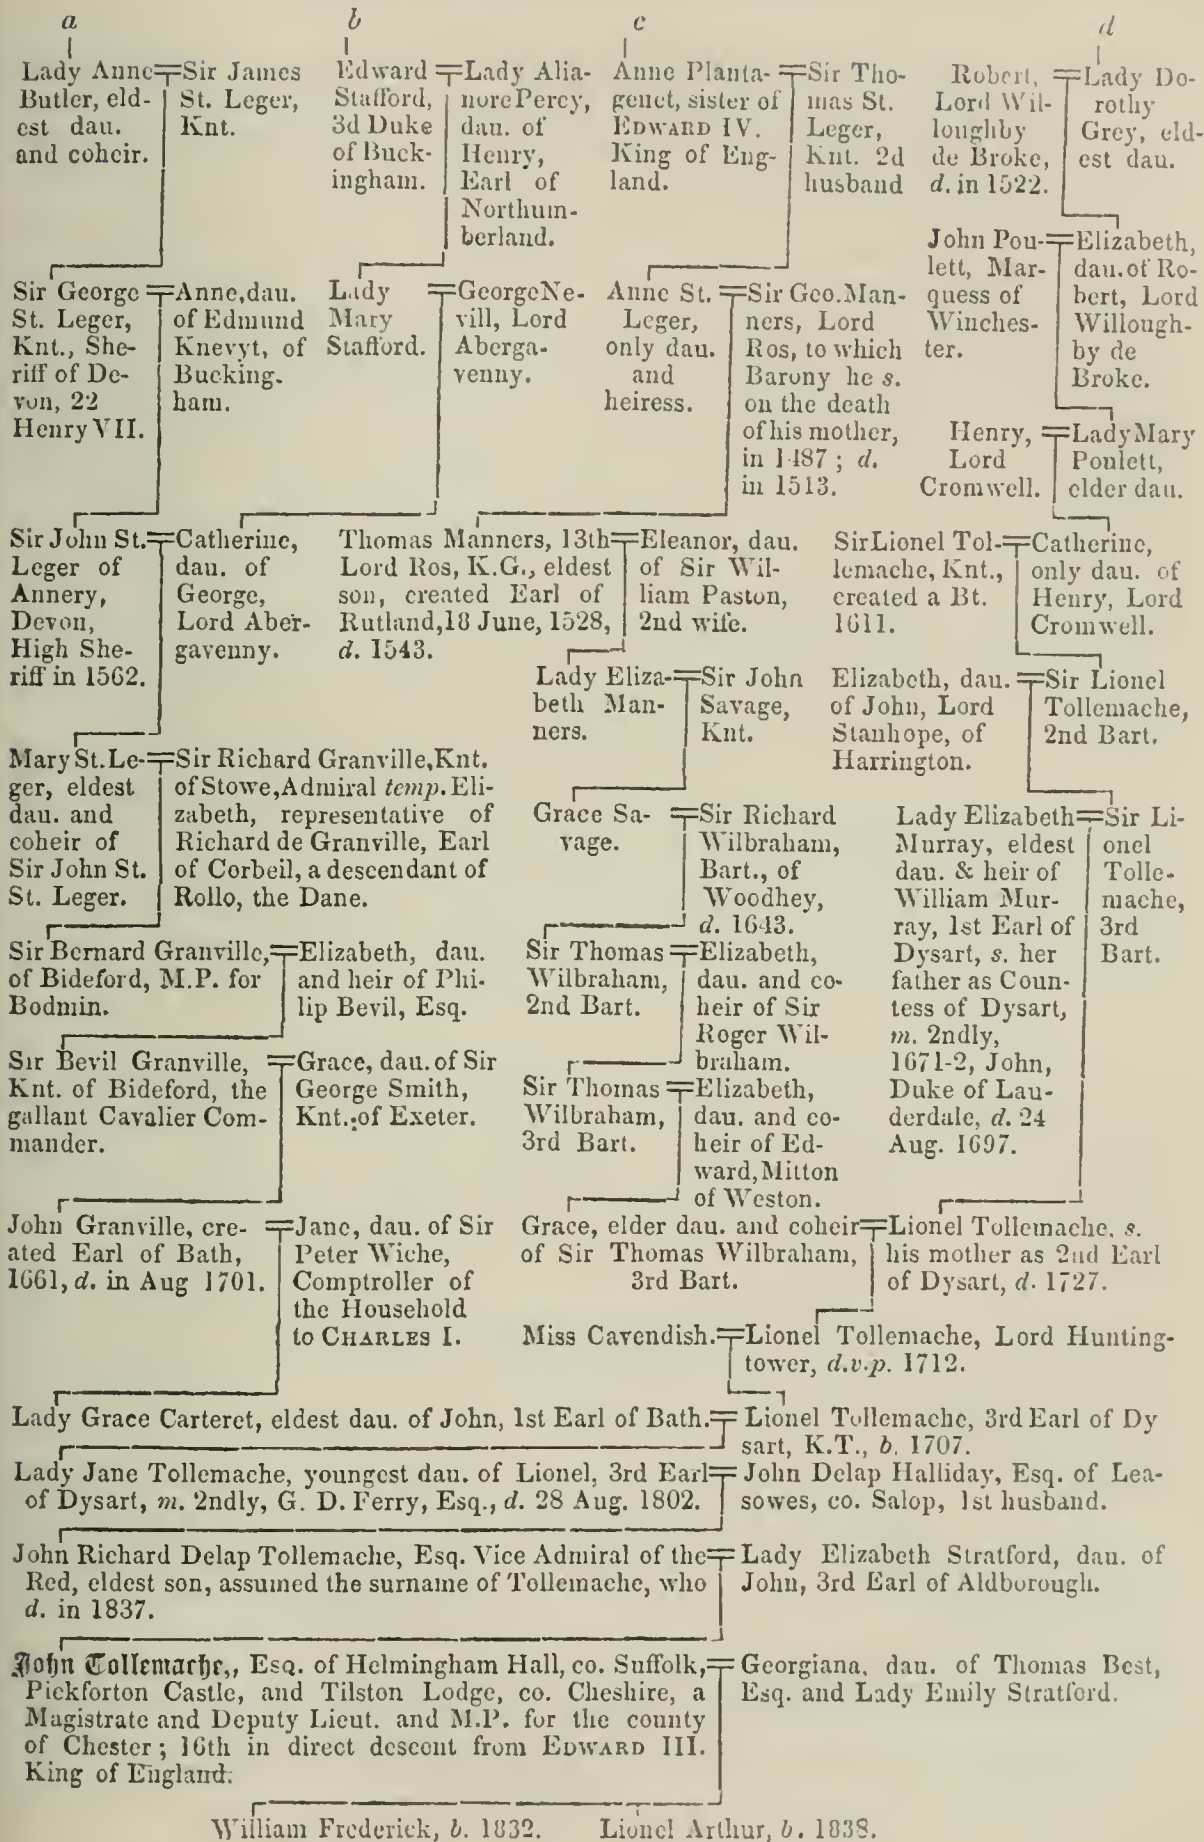 a
b
c
d
Lady Anne
Butler, eld-
est dau.
and coheir.
Sir James
St. Leger,
Knt.
Edward
Stafford,
3d Duke
of Buck-
ingham.
Lady Alia-
nore Percy,
dau. of
Henry,
Earl of
Northum-
berland.
Anne Planta-
genet, sister of
EDWARD IV.
King of Eng-
land.
Sir Tho-
mas St.
Leger,
Knt. 2d
husband
Robert,
Lord Wil-
loughby
de Broke,
d. in 1522.
Lady Do-
rothy
Grey, eld-
est dau.
John Pou-
lett, Mar-
quess of
Winches-
ter.
Elizabeth,
dau. of Ro-
bert, Lord
Willough-
by de
Broke.
Sir George
St. Leger,
Knt., She-
riff of De-
von, 22
Henry VII.
Anne, dau.
of Edmund
Knevyt, of
Bucking-
ham.
Lady
Mary
Stafford.
George Ne-
vill, Lord
Aberga-
venny.
Anne St.
Leger,
only dau.
and
heiress.
Sir Geo. Man-
ners, Lord
Ros, to which
Barony he s.
on the death
of his mother,
in 1487; d.
in 1513.
Henry,
Lord
Cromwell.
Lady Mary
Poulett,
elder dau.
Sir John St.
Leger of
Annery,
Devon,
High She-
riff in 1562.
Catherine,
dau. of
George,
Lord Aber-
gavenny.
Thomas Manners, 13th
Lord Ros, K.G., eldest
son, created Earl of
Rutland, 18 June, 1528,
d. 1543.
Eleanor, dau.
of Sir Wil-
liam Paston,
2nd wife.
Sir Lionel Tol-
lemache, Knt.,
created a Bt.
1611.
Catherine,
only dau. of
Henry, Lord
Cromwell.
Lady Eliza-
beth Man-
ners.
Sir John
Savage,
Knt.
Elizabeth, dau.
of John, Lord
Stanhope, of
Harrington.
Sir Lionel
Tollemache,
2nd Bart.
Mary St. Le-
ger, eldest
dau. and
coheir of
Sir John St.
St. Leger.
Sir Richard Granville, Knt.
of Stowe, Admiral temp. Eli-
zabeth, representative of
Richard de Granville, Earl
of Corbeil, a descendant of
Rollo, the Dane.
Grace Sa-
vage.
Sir Richard
Wilbraham,
Bart., of
Woodhey,
d. 1643.
Lady Elizabeth
Murray, eldest
dau. & heir of
William Mur-
ray, 1st Earl of
Dysart, s. her
father as Coun-
tess of Dysart,
m. 2ndly,
1671-2, John,
Duke of Lau-
derdale, d. 24
Aug. 1697.
Sir Li-
onel
Tolle-
mache,
3rd
Bart.
Sir Bernard Granville,
of Bideford, M.P. for
Bodmin.
Elizabeth, dau.
and heir of Phi-
lip Bevil, Esq.
Sir Thomas
Wilbraham,
2nd Bart.
Elizabeth,
dau. and co-
heir of Sir
Roger Wil-
braham.
Sir Bevil Granville,
Knt. of Bideford, the
gallant Cavalier Com-
mander.
Grace, dau. of Sir
George Smith,
Knt. of Exeter.
Sir Thomas
Wilbraham,
3rd Bart.
Elizabeth,
dau. and co-
heir of Ed-
ward, Mitton
of Weston.
John Granville, cre-
ated Earl of Bath,
1661, d. in Aug 1701.
Jane, dau. of Sir
Peter Wiche,
Comptroller of
the Household
to CHARLES I.
Grace, elder dau. and coheir
of Sir Thomas Wilbraham,
3rd Bart.
Lionel Tollemache, s.
his mother as 2nd Earl
of Dysart, d. 1727.
Miss Cavendish.
Lionel Tollemache, Lord Hunting-
tower, d.v.p. 1712.
Lady Grace Carteret, eldest dau. of John, 1st Earl of Bath.
Lionel Tollemache, 3rd Earl of Dy
sart, K.T., b. 1707.
Lady Jane Tollemache, youngest dau. of Lionel, 3rd Earl
of Dysart, m. 2ndly, G. D. Ferry, Esq., d. 28 Aug. 1802.
John Delap Halliday, Esq. of Lea-
sowes, co. Salop, 1st husband.
John Richard Delap Tollemache, Esq. Vice Admiral of the
Red, eldest son, assumed the surname of Tollemache, who
d. in 1837.
Lady Elizabeth Stratford, dau. of
John, 3rd Earl of Aldborough.
John Tollemache,, Esq. of Helmingham Hall, co. Suffolk,
Pickforton Castle, and Tilston Lodge, co. Cheshire, a
Magistrate and Deputy Lieut. and M.P. for the county
of Chester; 16th in direct descent from EDWARD III.
King of England.
Georgiana, dau. of Thomas Best,
Esq. and Lady Emily Stratford.
William Frederick, b. 1832.
Lionel Arthur, b. 1838.